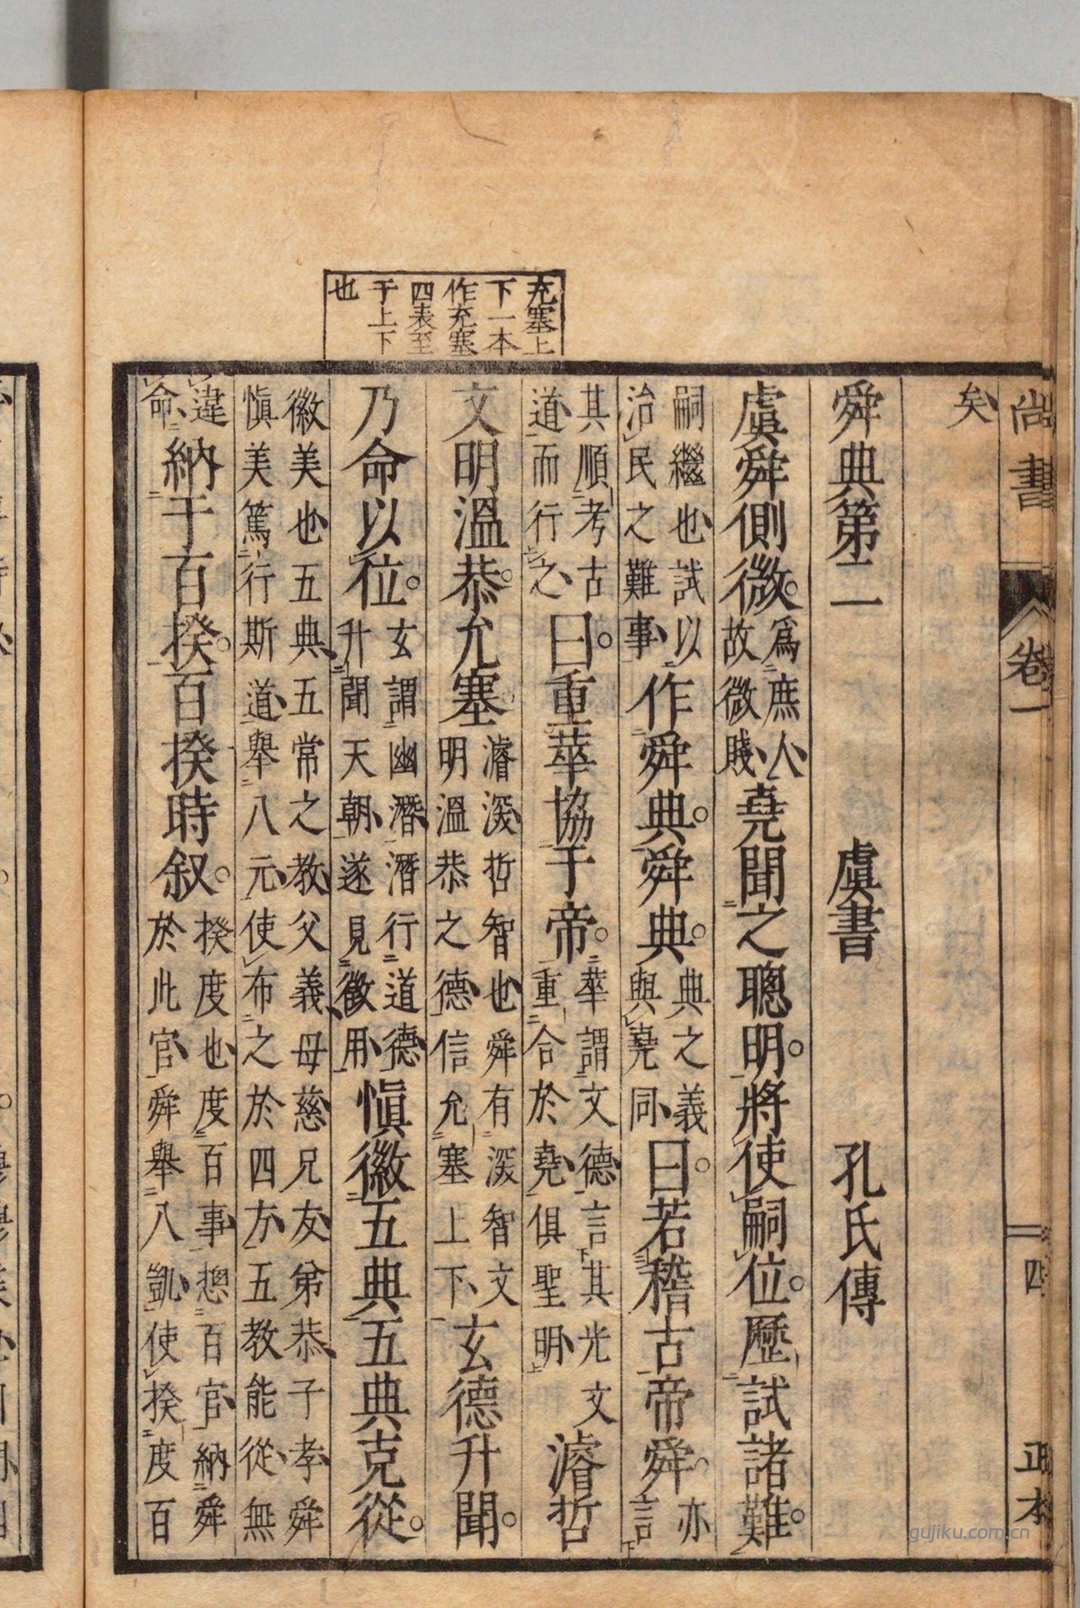 尚書 卷一 四 正本
充塞上
下一本
作充塞
四表至
于上下
也
矣
舜典第二 虞書 孔氏傳
虞舜側微。爲庶人故微賤堯聞之聰明。將使嗣位。歷試諸難。
嗣繼也試以治民之難事作舜典。舜典。典之義與堯同曰。若稽古帝舜。亦言
其順考古道而行之曰。重華協于帝。華謂文德言其光文重合於堯俱聖明濬哲
文明溫恭。允塞濬深哲智也舜有深智文明溫恭之德信允塞上下玄德升聞。
乃命以位。玄謂幽潛潛行道德升聞天朝遂見徵用愼徽五典五典克從。
徽美也五典五常之教父義母慈兄友弟恭子孝舜愼美篤行斯道舉八元使布之於四方五教能從無
違命納于百揆。百揆時叙。揆度也度百事揔百官納舜於此官舜舉八凱使揆度百
gujiku.com.cn